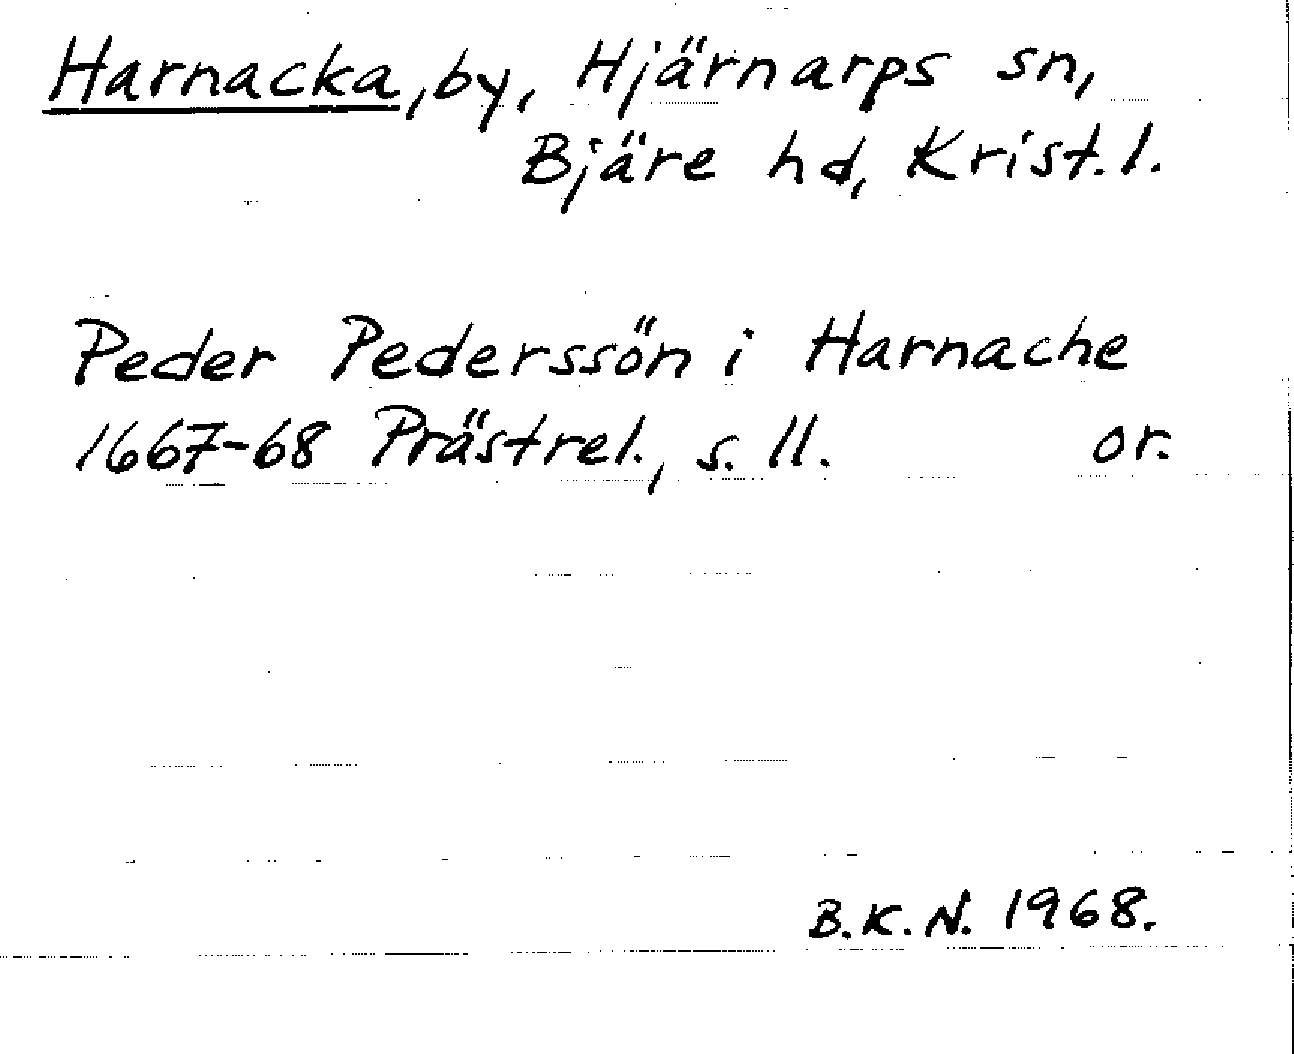 Harnacka, by, Hjärnarps sn,
Bjäre hd, Krist. l.
Peder Pederssön i Harnache
1667-68 Prästrel., s. 11. or.
B. K. N. 1968.